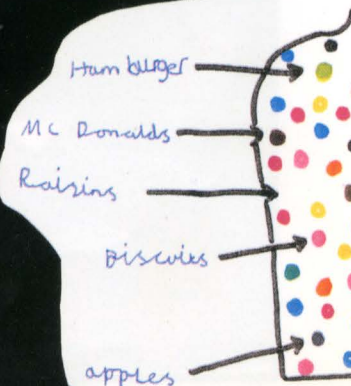 Hamburger
Mc Donalds
Raisins
Biscuits
apples